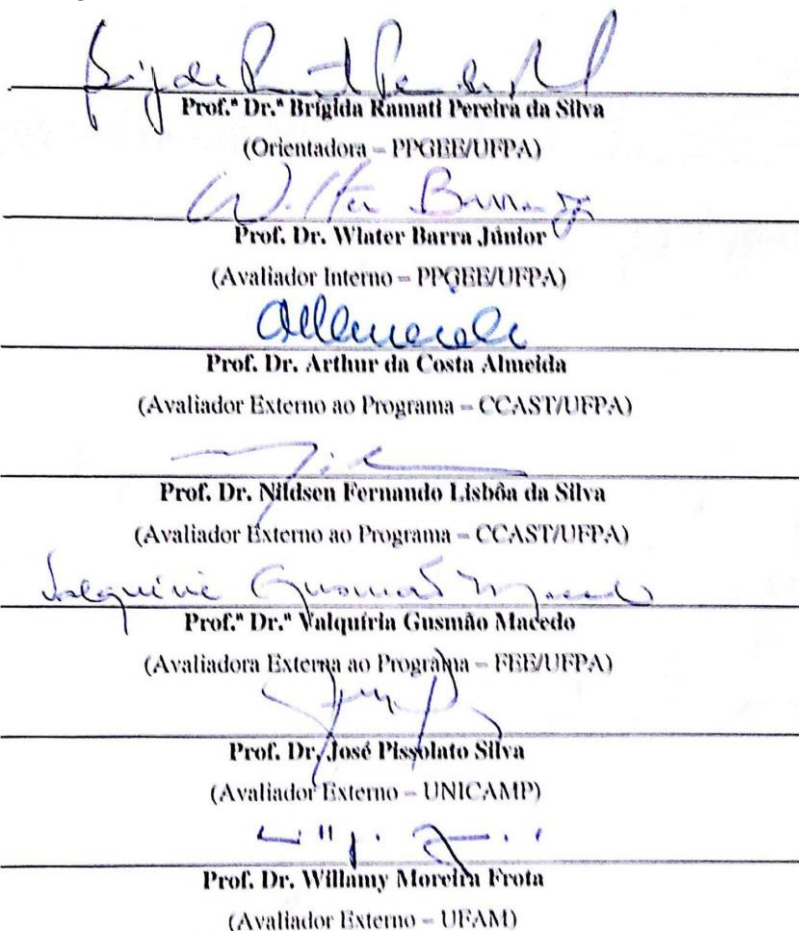 Prof.ª Dr.ª Brígida Ramati Pereira da Silva
(Orientadora – PPGEE/UFPA)
Prof. Dr. Wlater Barra Júnior
(Avaliador Interno – PPGEE/UFPA)
Prof. Dr. Arthur da Costa Almeida
(Avaliador Externo ao Programa – CCAST/UFPA)
Prof. Dr. Nildsen Fernando Lisbôa da Silva
(Avaliador Externo ao Programa – CCAST/UFPA)
Valquíria Gusmão Macedo
Prof.ª Dr.ª Valquíria Gusmão Macedo
(Avaliadora Externa ao Programa – FEE/UFPA)
Prof. Dr. José Pissolato Silva
(Avaliador Externo – UNICAMP)
Prof. Dr. Willamy Moreira Frota
(Avaliador Externo – UFAM)